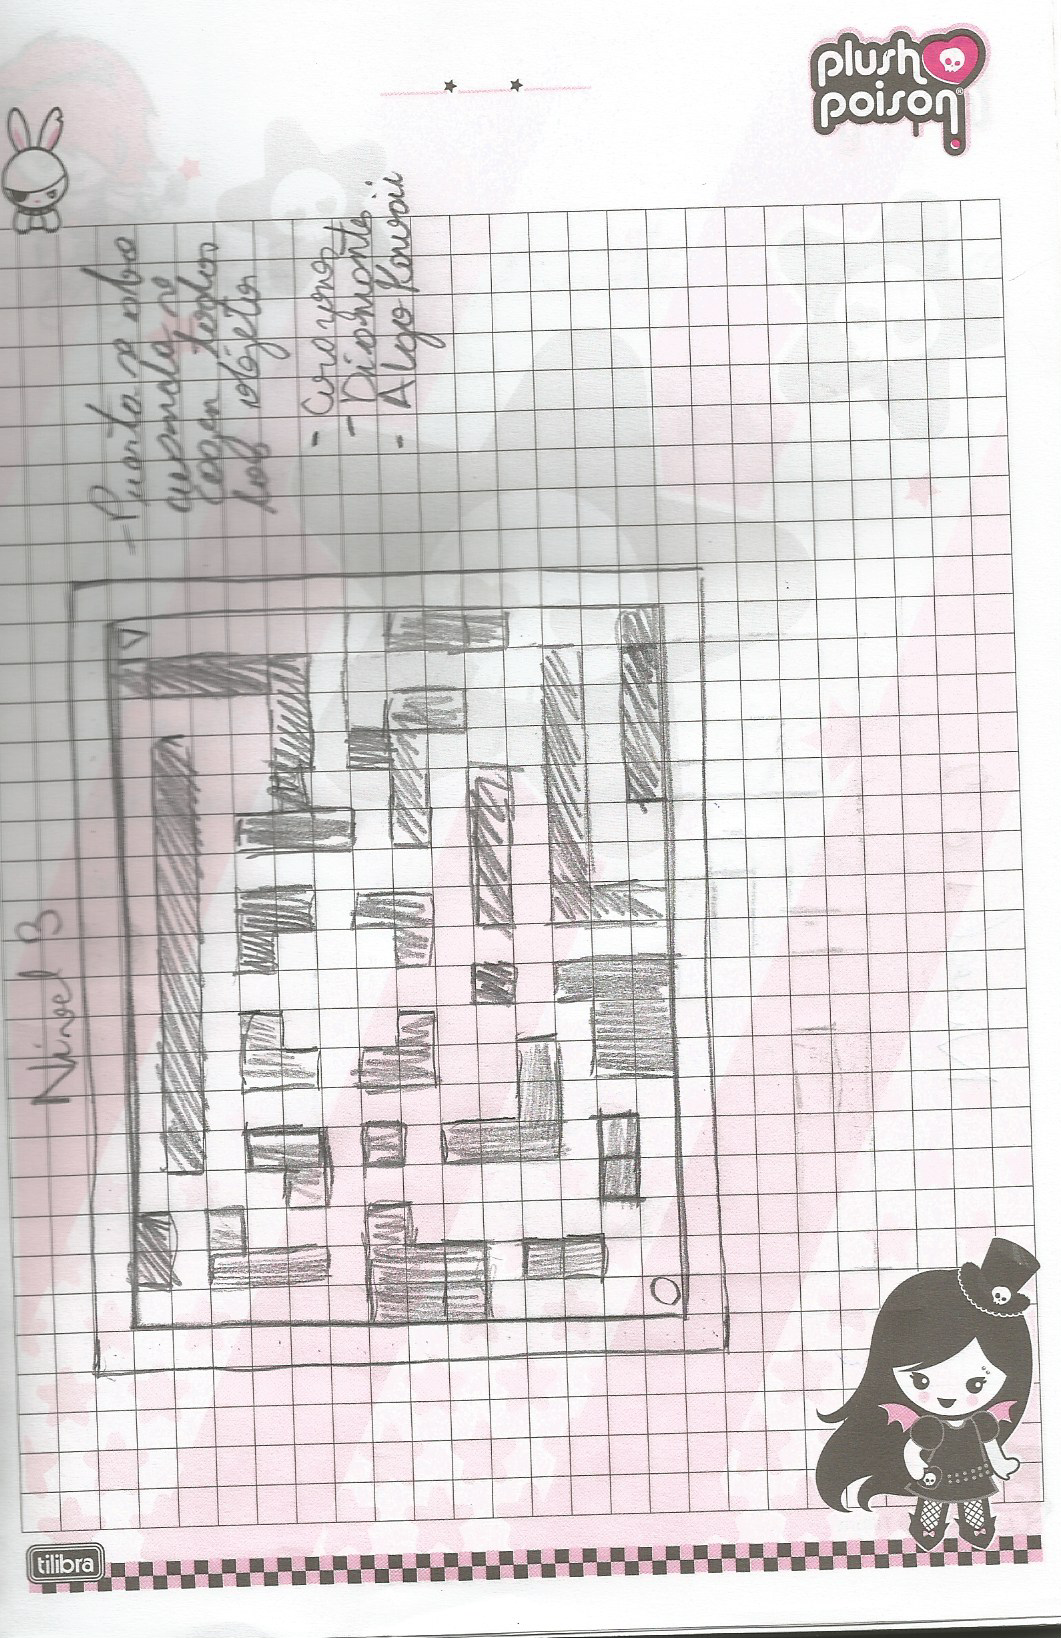 plush
poison
Nivel 3
- Puerta se abre
cuando se
cogen todos
los objetos
- Corazones
- Diamantes
- Algo Kawaii
tilibra